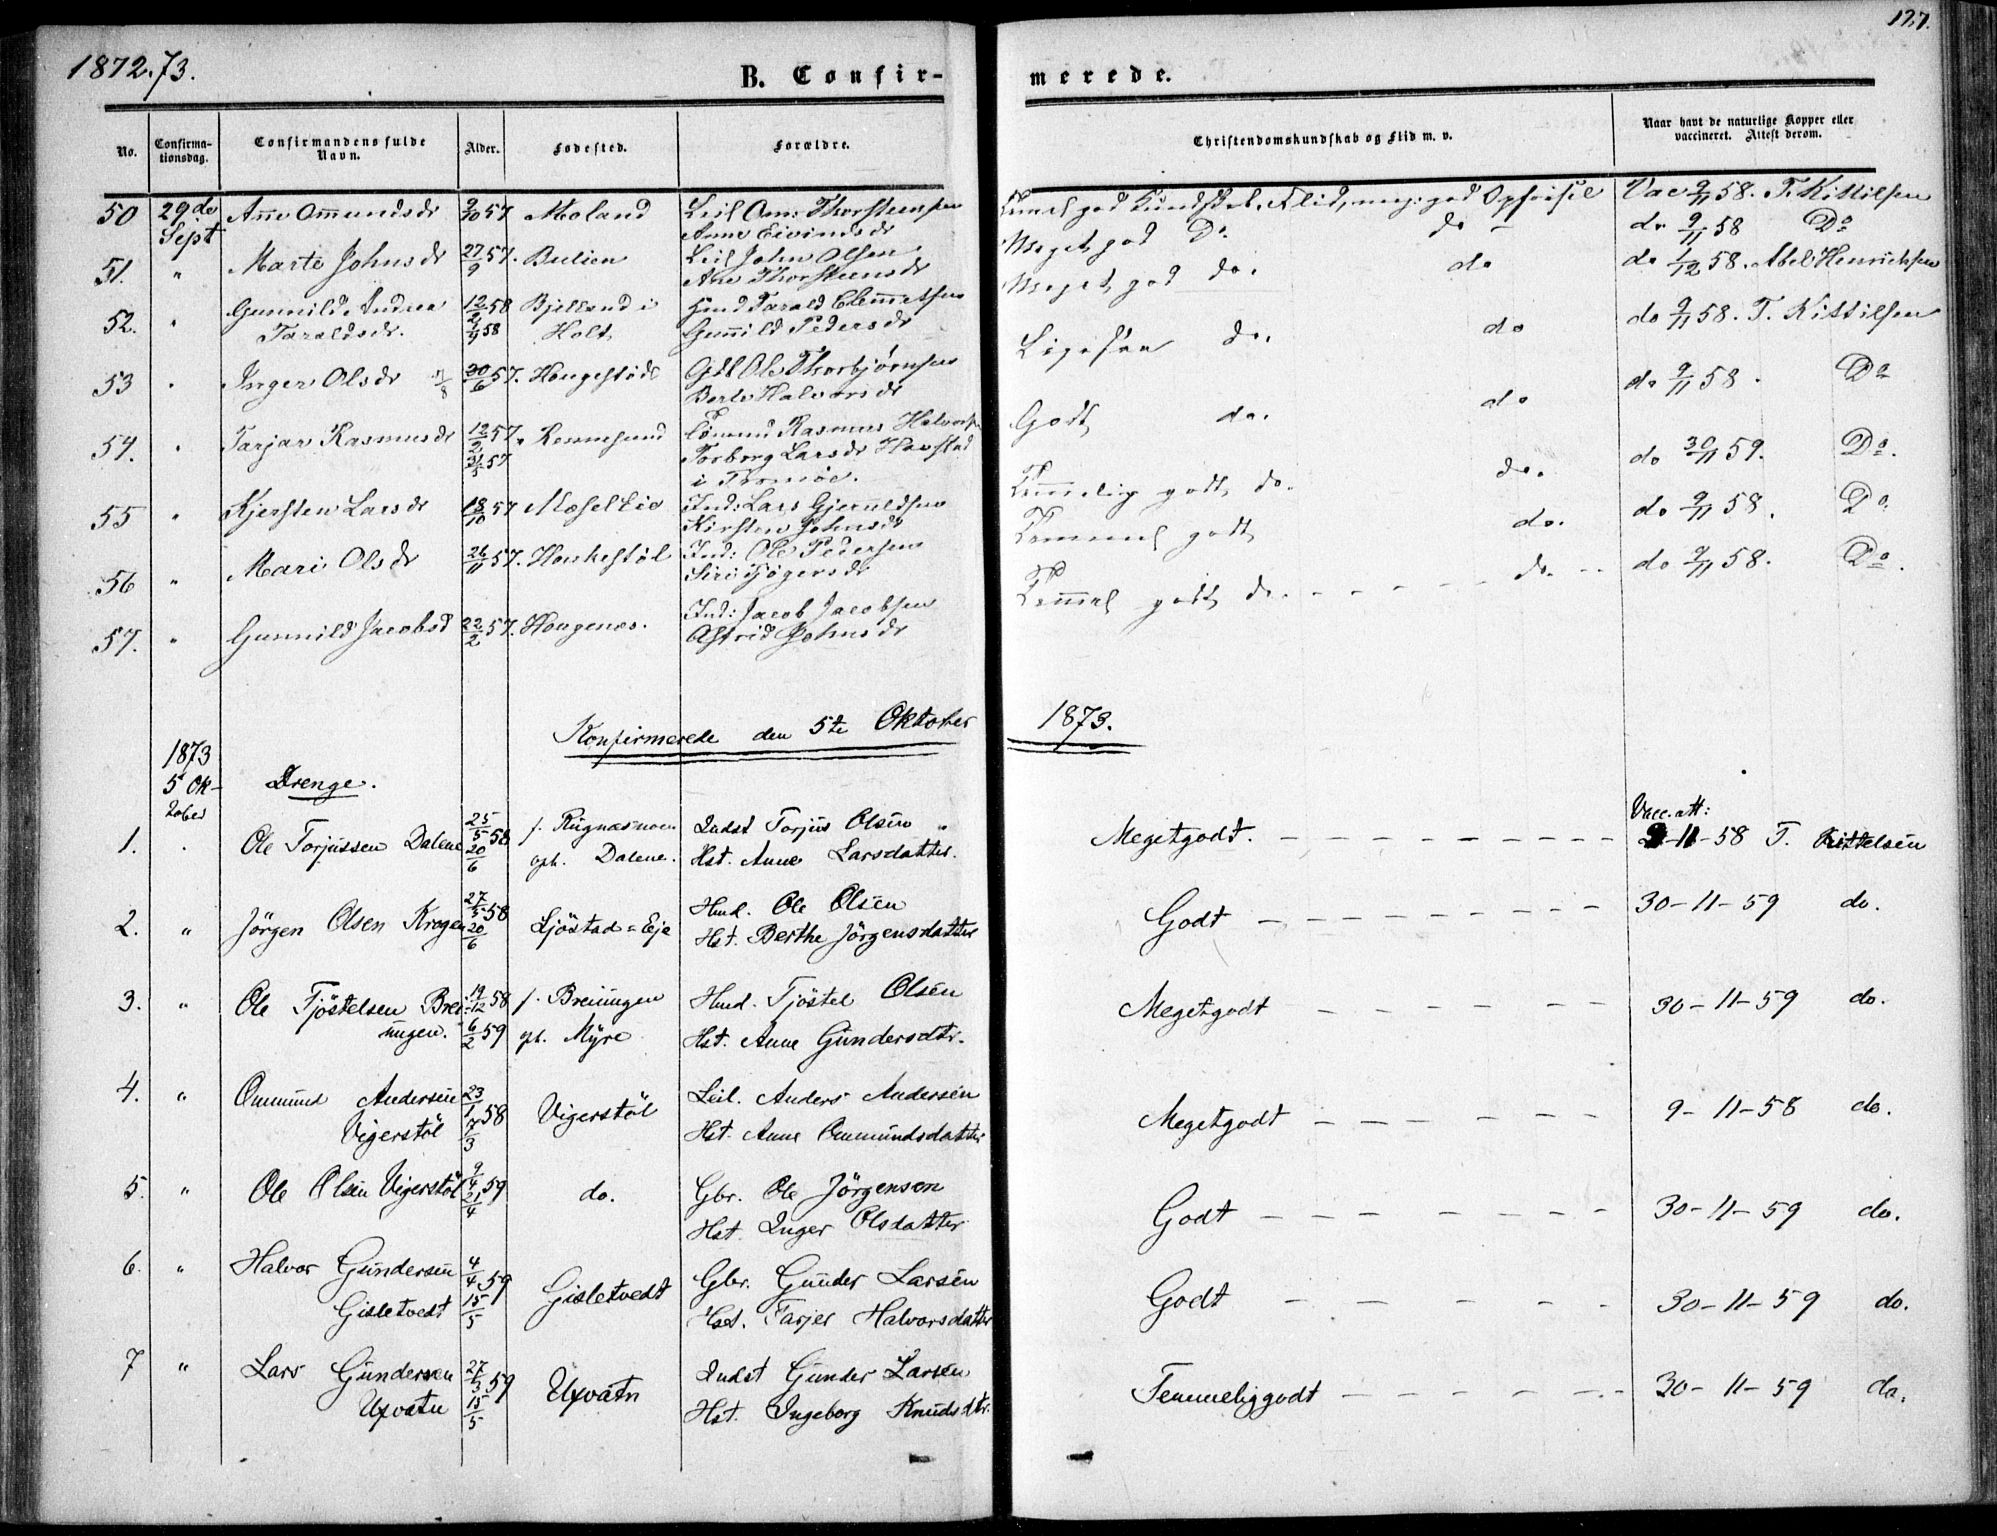 1872.73.
B. Confir-
merede.
127.
No.
Confirma-
tionsdag.
Confirmandens fulde
Navn.
Alder.
Fødested.
Forældre.
Christendomskundskab og Flid m. v.
Naar havt de naturlige Kopper eller
vaccineret. Attest derom.
50 29de Sept Anne Ommundsdr 57 Moland Leil Om: Thorstensen
Anne Eivindsdr
god Kundskab, Flid, meg: god Opførsel Vac 9/11 58. T. Kittilsen
51. " Marte Johnsdr 27/9 57. Bulien Leil John Olsen
Ane Thorstensdr
Meget god Do. do do 9/11 58 Do
52. " Gunnild Andrea 12/2 58 Bjelland i Hmd Tarald Clemetsen
Taraldsdr. 58 Holt Gunnild Pedersdr
Meget god do. do do 1/12 58. Abel Henrichsen
53 " Inger Olsdr 30/6 57. Hougestøl Gbl Ole Thorbjørnsen
Berte Halvorsdr
Ligesaa do. do do 9/11 58. T. Kittilsen
54. " Tarjer Rasmusdr 12/2 57. Rasmus Halvors
31/5 57 Torborg Larsdr Havstad
i Tromøe.
Godt do. do do 9/11 58. Do
55 " Kjersten Larsdr 18/10 57 Mosellie Ind: Lars Gjeruldsen
Kirsten Johnsdr
Temmelig godt do. do. do 30/11 59. Do.
56 " Mari Olsdr 26/11 57. Houkestøl Ind: Ole Pedersen
Siri
Temmel godt do. do 9/11 58. Do
57. " Gunnild Jacobsd 22/2 57. Hougenes. Ind: Jacob Jacobsen
Astrid Johnsdr
Temmel godt do. - - - - do. - - do 9/11 58. Do.
Konfirmerede den 5te Oktober 1873.
1873
5 Ok-
tober
Drenge.
1. Ole Torjussen Dalene 25/5 58 20/6 f. Rugnæsmoen Indst Torjus Olsen
oph. Dalene. Hst. Anne Larsdatter.
Megetgodt. Vacc. att:
9-11-58 T. Kittelsen
2. " Jörgen Olsen Krogen 27/5 58 20/6 Ljöstad=Eje Hmd. Ole Olsen
Hst. Berthe Jörgensdatter
Godt 30-11-59 do.
3. " Ole Tjöstelsen Brei- 19/12 58 f. Breiungen Hmd. Tjöstel Olsen
ungen. 6/2 59 oph. Myre Hst. Anne Gundersdtr.
Megetgodt 30-11-59 do.
4. " Ommund Andersen 23/1 58 Vigerstöl Leil. Anders Andersen
Vigerstöl 17/3 Hst. Anne Ommundsdatter
Megetgodt 9-11-58 do.
5. " Ole Olsen Vigerstöl 9/4 59 21/4 do. Gbr. Ole Jörgensen
Hst. Inger Olsdatter
Godt 30-11-59 do.
6. " Halvor Gundersen 4/4 59 Gisletvedt Gbr. Gunder Larsen
Gisletvedt 15/5 Hst. Tarjer Halvorsdatter
Godt 30-11-59 do.
7 " Lars Gundersen 27/3 59 Uxvatn Indst Gunder Larsen
Uxvatn 15/5 Hst. Ingeborg Knudsdtr.
Temmeliggodt 30-11-59 do.